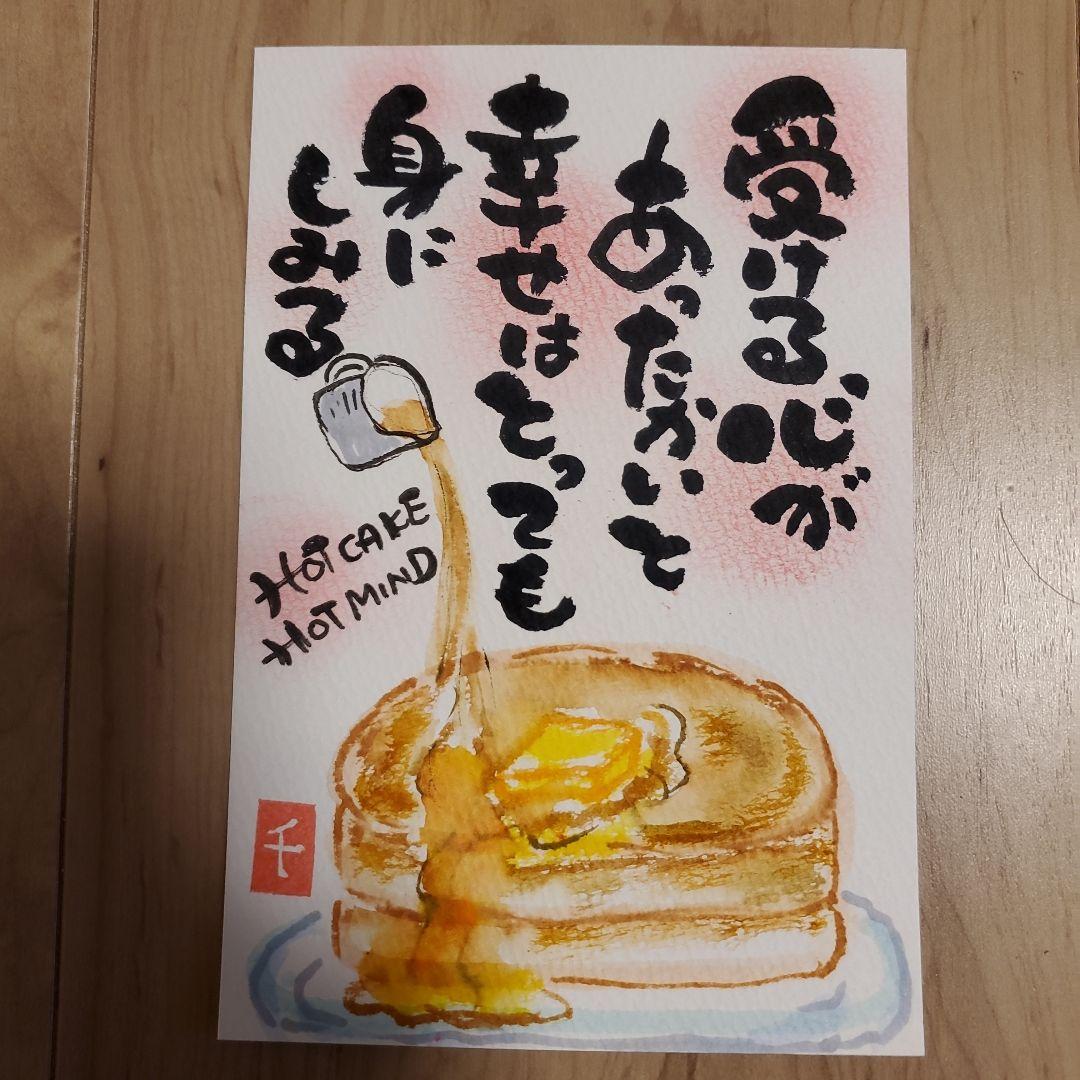 受ける心が
あったかいと
幸せはとっても
身に
しみる
HOT CAKE
HOT MIND
千